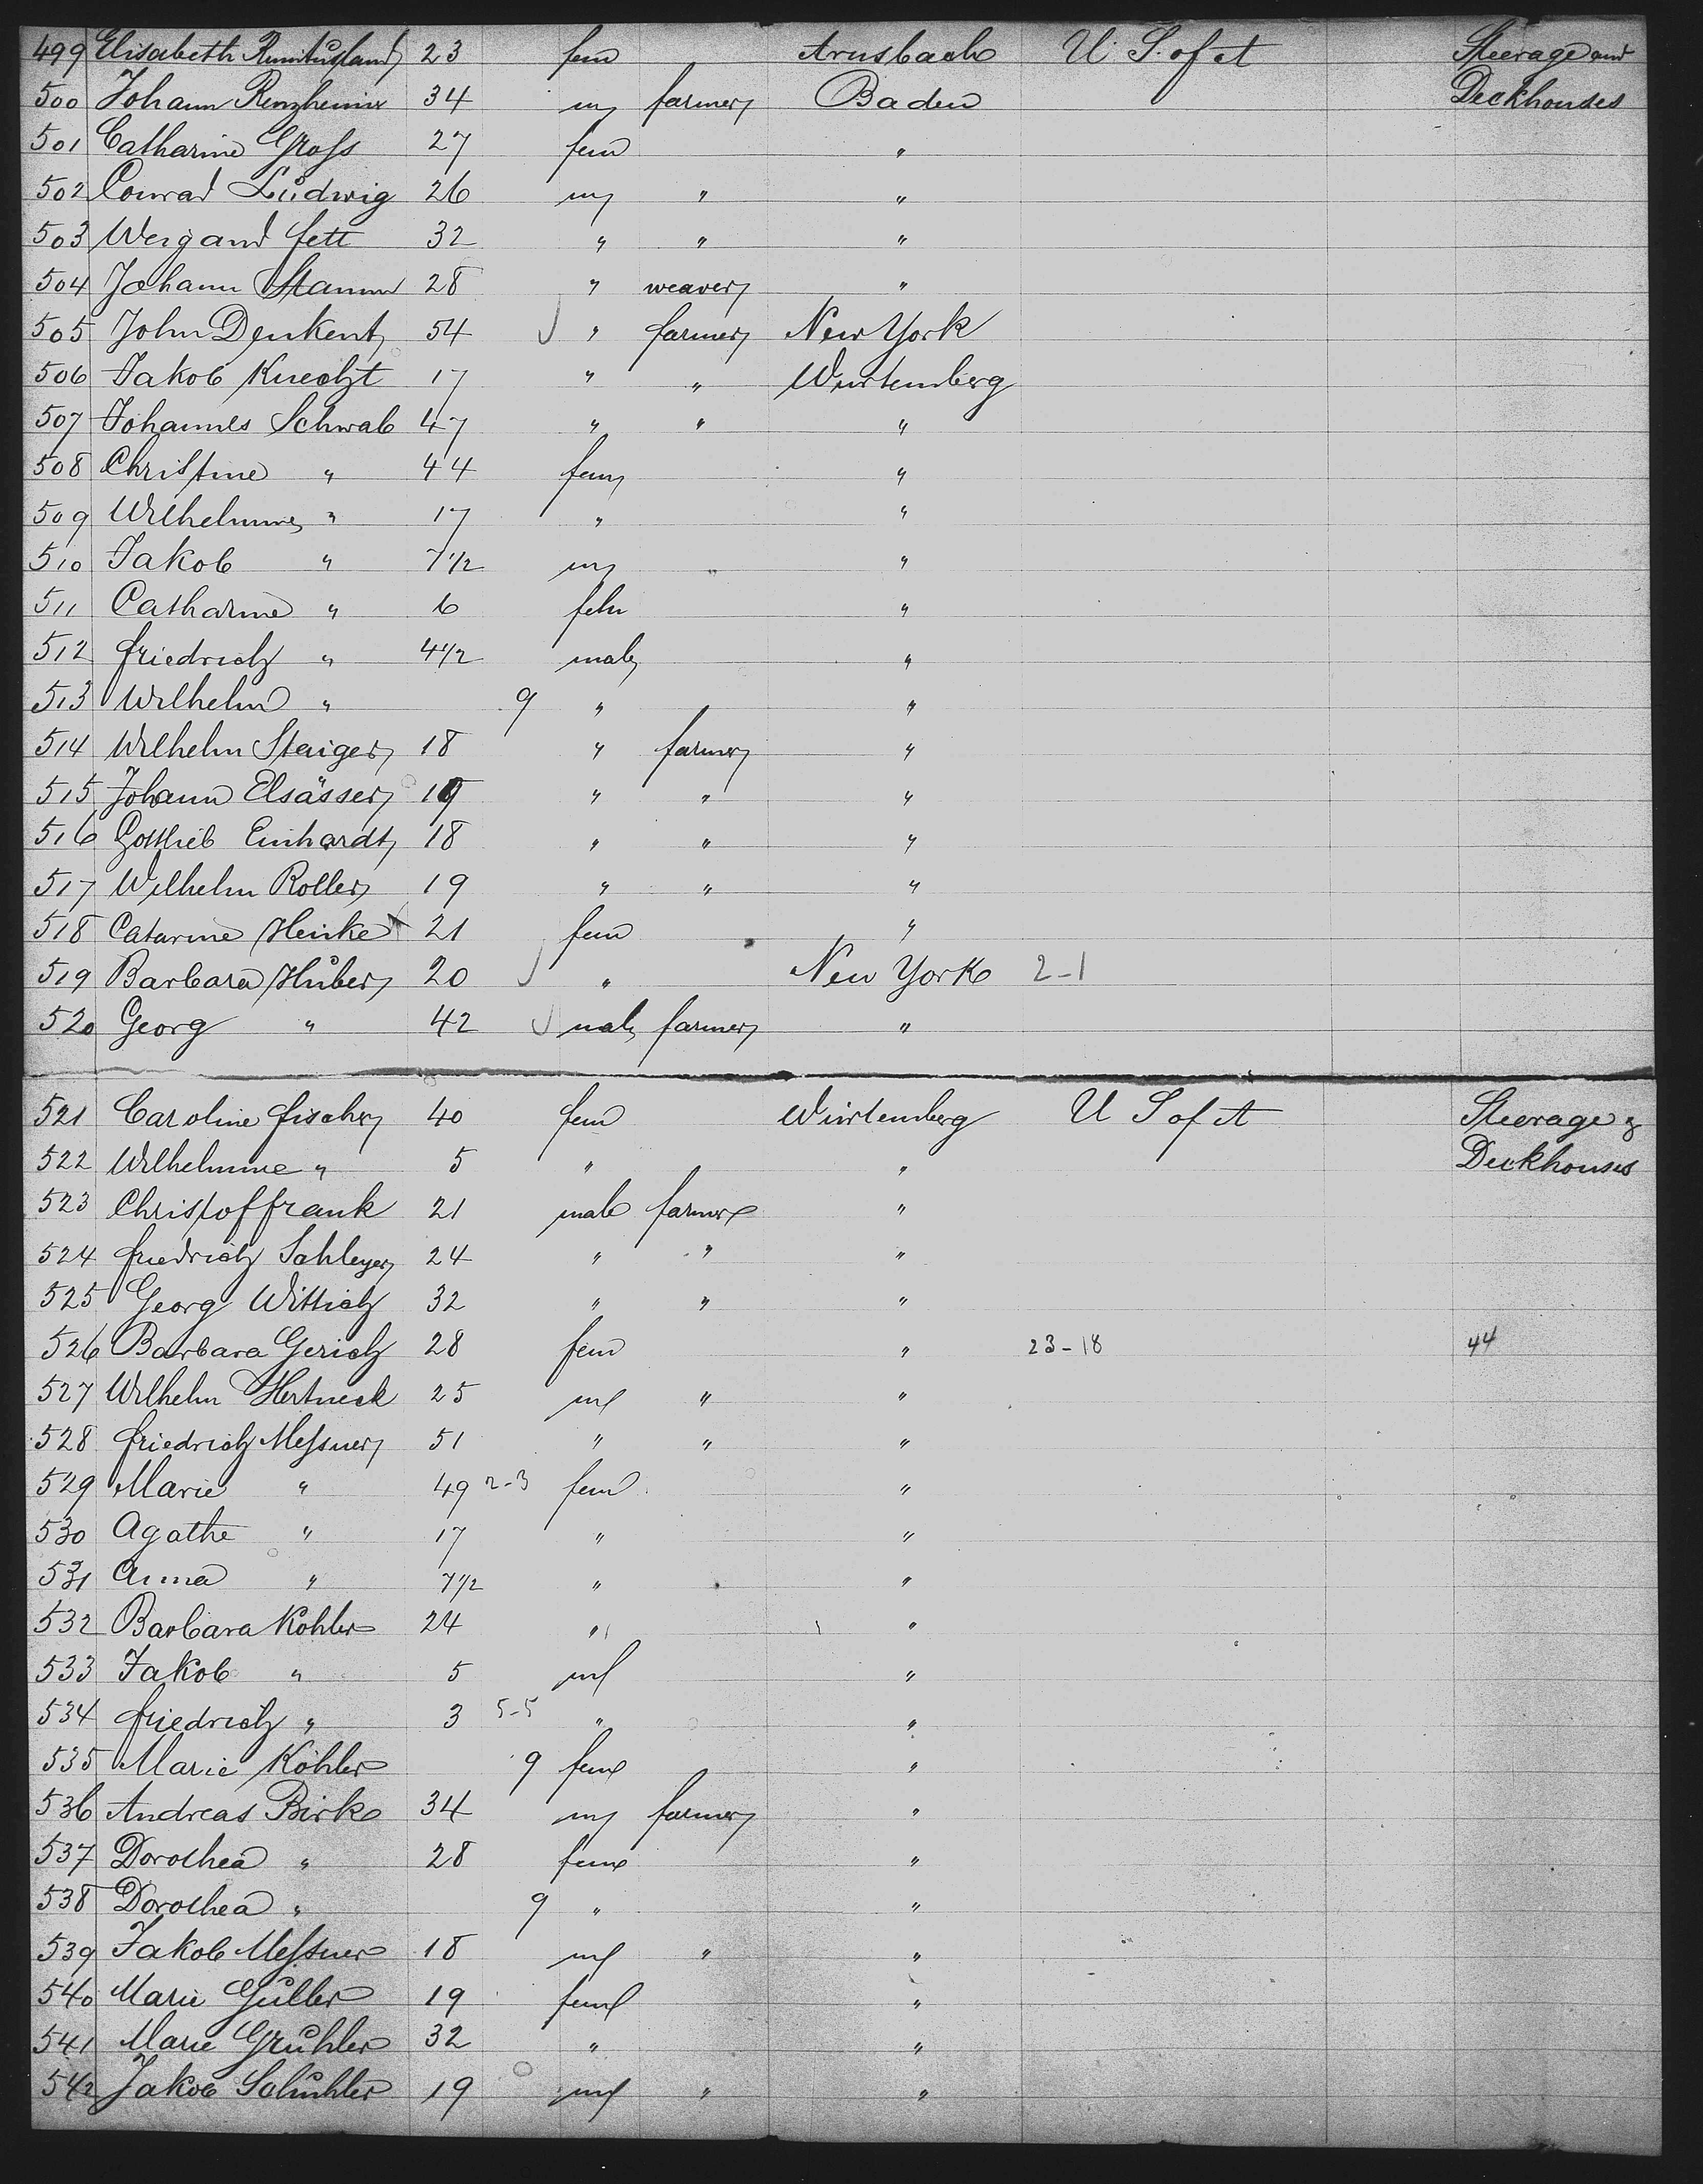 499 Elisabeth 23 fem Arnsbach U. S. of A Steerage and
500 Johann 34 m farmer Baden Deckhouses
501 Catharine Groſs 27 fem "
502 Conrad Ludwig 26 m " "
503 Weigand Fett 32 " " "
504 Johann Stamm 28 " weaver "
505 John Denkert 54 " farmer New York
506 Jakob Knecht 17 " " Wurtemberg
507 Johannes Schwab 47 " " "
508 Christine " 44 fem "
509 Wilhelmine " 17 " "
510 Jakob " 7 1/2 m "
511 Catharine " 6 fem "
512 Friedrich " 4 1/2 male "
513 Wilhelm " 9 " "
514 Wilhelm Staiger 18 " farmer "
515 Johann Elsässer 19 " " "
516 Gottlieb Einhardt 18 " " "
517 Wilhelm Roller 19 " " "
518 Catarine Heinke 21 fem "
519 Barbara Huber 20 " New York 2-1
520 Georg " 42 male farmer "
521 Caroline Fischer 40 fem Würtemberg U S of A Steerage &
522 Wilhelmine " 5 " " Deckhouses
523 Christof Frank 21 male farmer "
524 Friedrich Schleyer 24 " " "
525 Georg Wittich 32 " " "
526 Barbara Gerich 28 fem " 23-18 44
527 Wilhelm Hertneck 25 ml " "
528 Friedrich Meſsner 51 " " "
529 Marie " 49 2-3 fem "
530 Agathe " 17 " "
531 Anna " 7 1/2 " "
532 Barbara Köhler 24 " "
533 Jakob " 5 ml "
534 Friedrich " 3 5-5 " "
535 Marie Köhler 9 fem "
536 Andreas Birk 34 m farmer "
537 Dorothea " 28 fem "
538 Dorothea " 9 " "
539 Jakob Meſsner 18 ml " "
540 Marie Guller 19 feml "
541 Marie Gruhler 32 " "
542 Jakob 19 ml " "